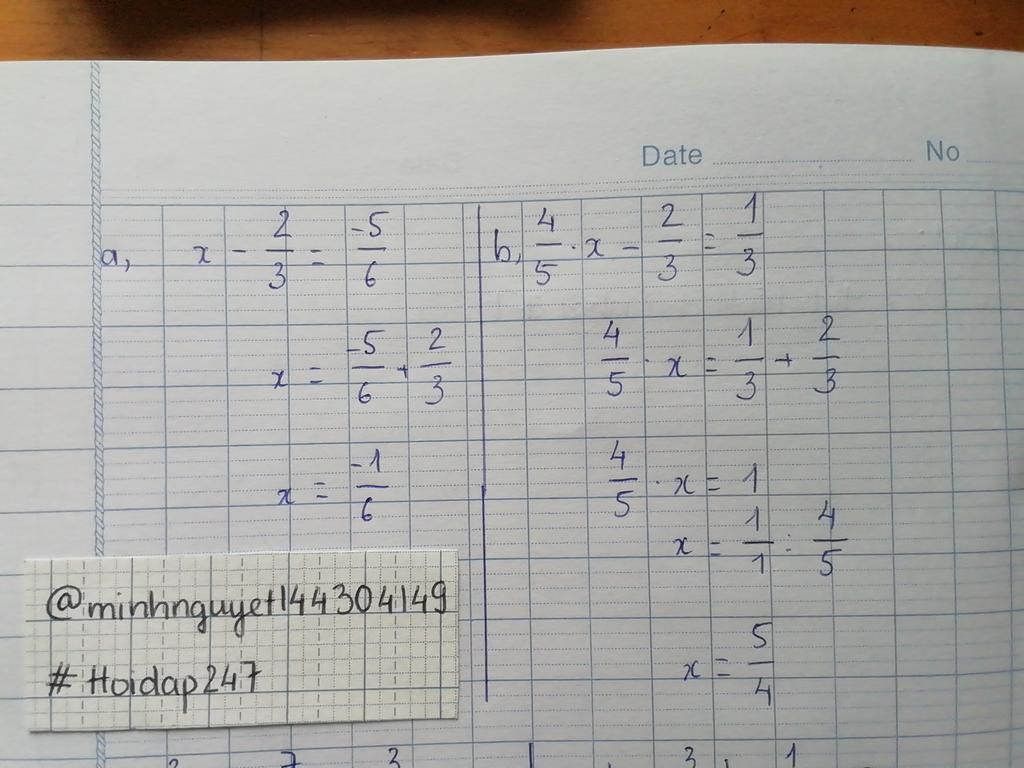 Date No
a, x - 2/3 = -5/6
x = -5/6 + 2/3
x = -1/6
b, 4/5 . x - 2/3 = 1/3
4/5 . x = 1/3 + 2/3
4/5 . x = 1
x = 1/1 : 4/5
x = 5/4
@minhnguyet144304149
# Hoidap247